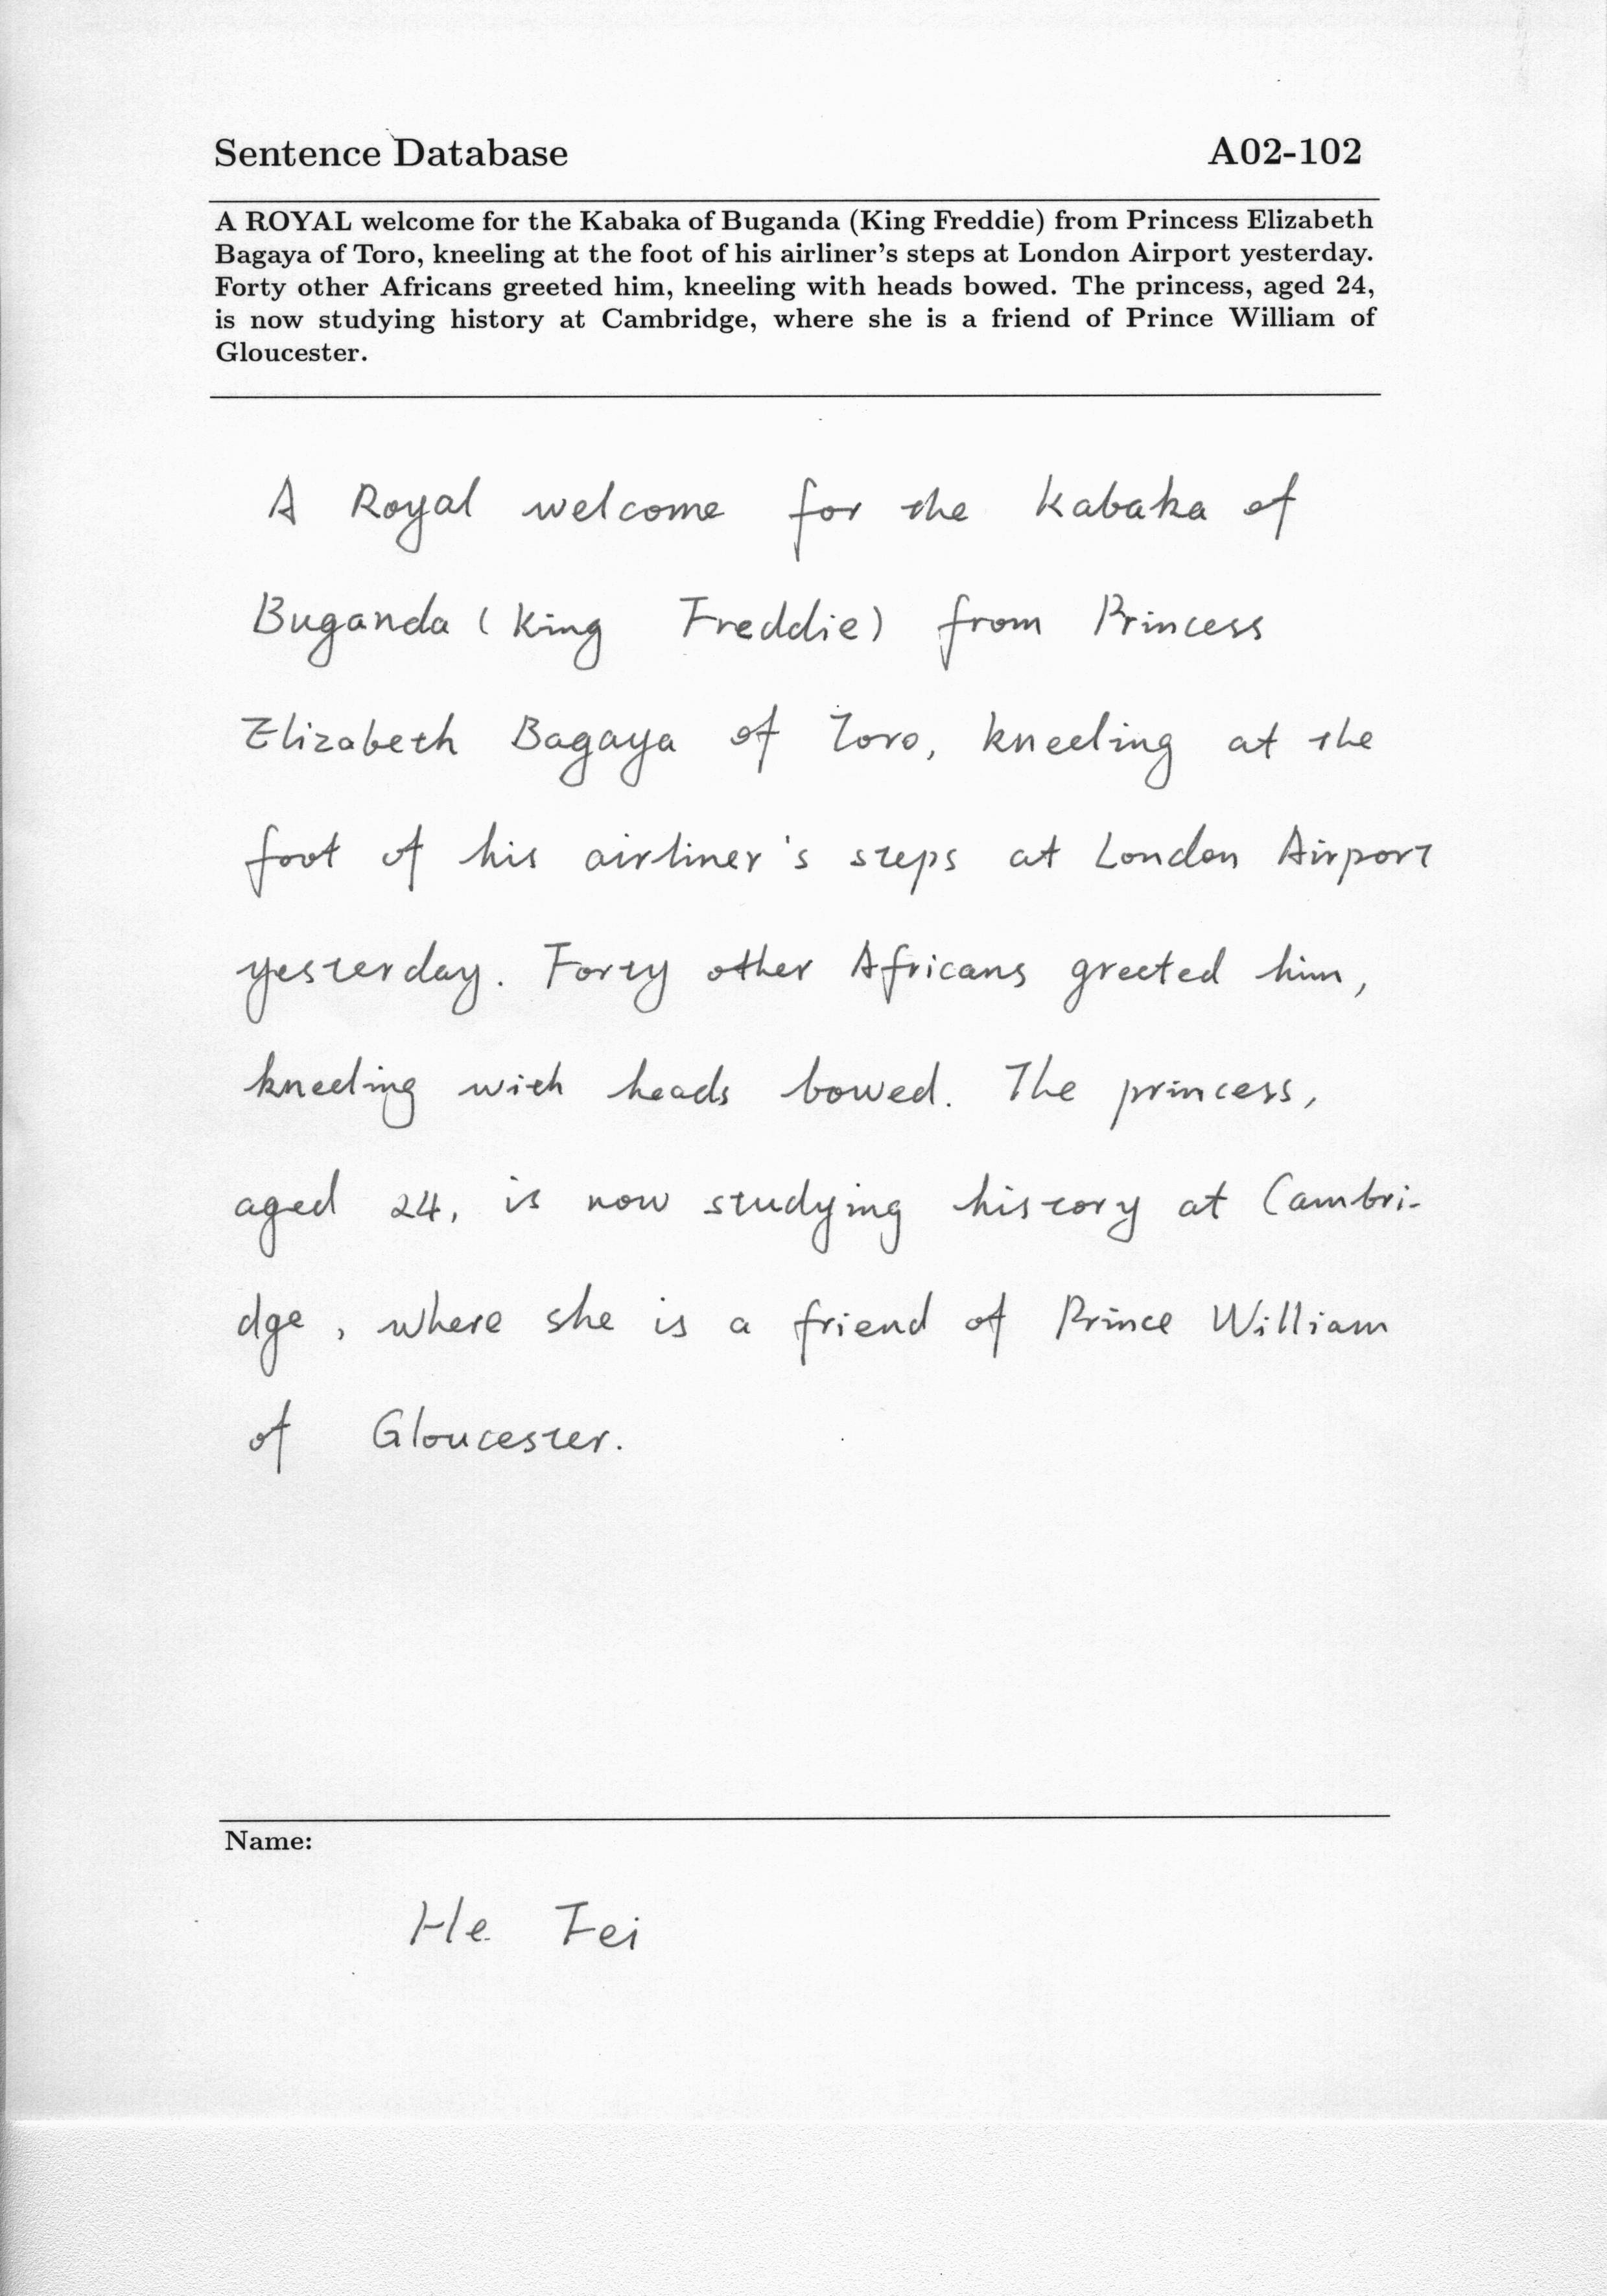 Sentence Database A02-102
A ROYAL welcome for the Kabaka of Buganda (King Freddie) from Princess Elizabeth
Bagaya of Toro, kneeling at the foot of his airliner's steps at London Airport yesterday.
Forty other Africans greeted him, kneeling with heads bowed. The princess, aged 24,
is now studying history at Cambridge, where she is a friend of Prince William of
Gloucester.
A Royal welcome for the Kabaka of
Buganda (King Freddie) from Princess
Elizabeth Bagaya of Toro, kneeling at the
foot of his airliner's steps at London Airport
yesterday. Forty other Africans greeted him,
kneeling with heads bowed. The princess,
aged 24, is now studying history at Cambri-
dge, where she is a friend of Prince William
of Gloucester.
Name:
He Fei